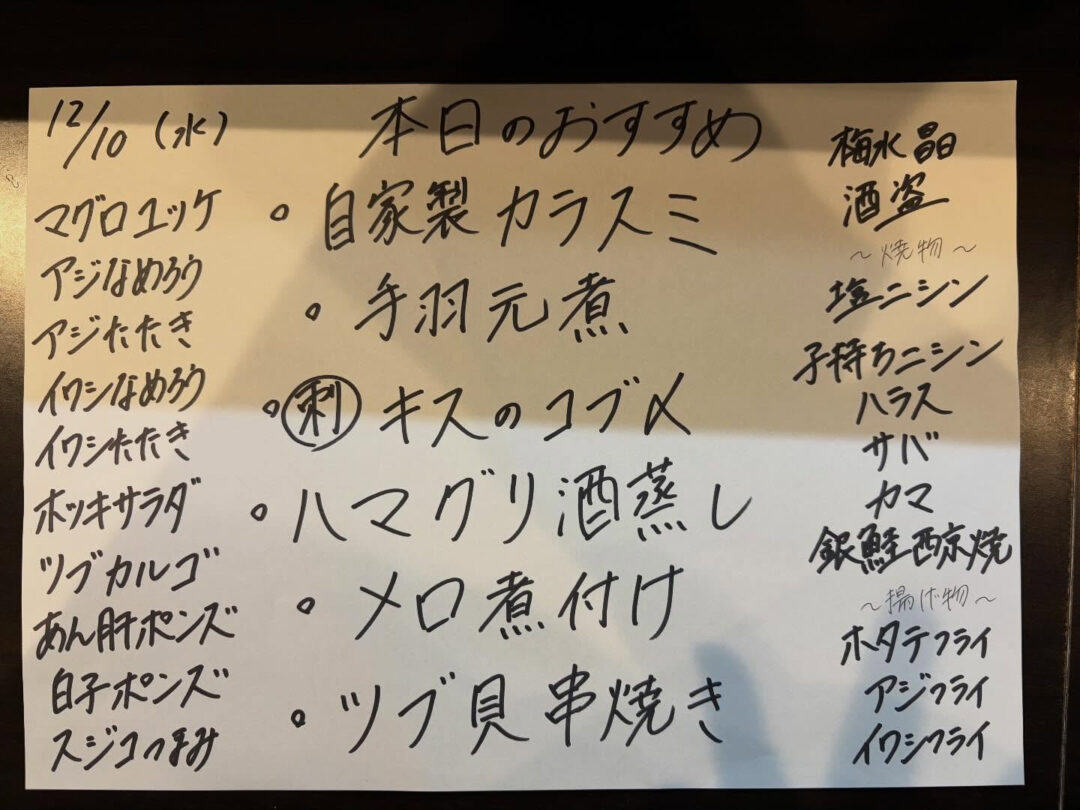 12/10 (水)
本日のおすすめ
マグロユッケ
アジなめろう
アジたたき
イワシなめろう
イワシたたき
ホッキサラダ
ツブカルゴ
あん肝ポンズ
白子ポンズ
スジコつまみ
・自家製カラスミ
・手羽元煮
・刺 キスのコブ〆
・ハマグリ酒蒸し
・メロ煮付け
・ツブ貝串焼き
梅水晶
酒盗
～焼物～
塩ニシン
子持ちニシン
ハラス
サバ
カマ
銀鮭西京焼
～揚げ物～
ホタテフライ
アジフライ
イワシフライ